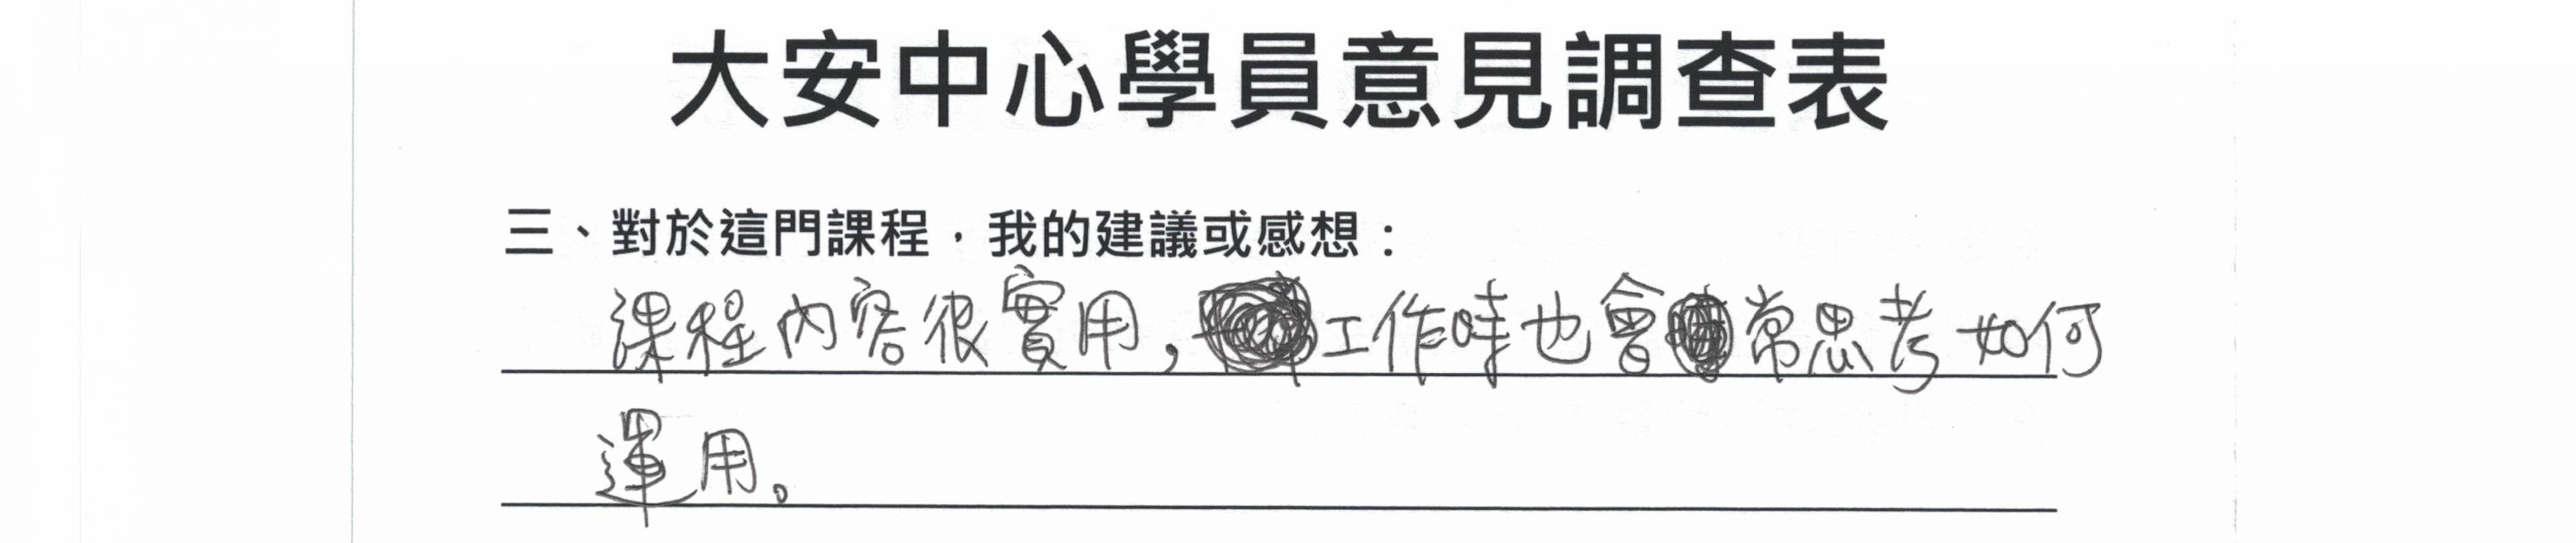 大安中心學員意見調查表
三、對於這門課程，我的建議或感想：
課程內容很實用，工作時也會常思考如何
運用。